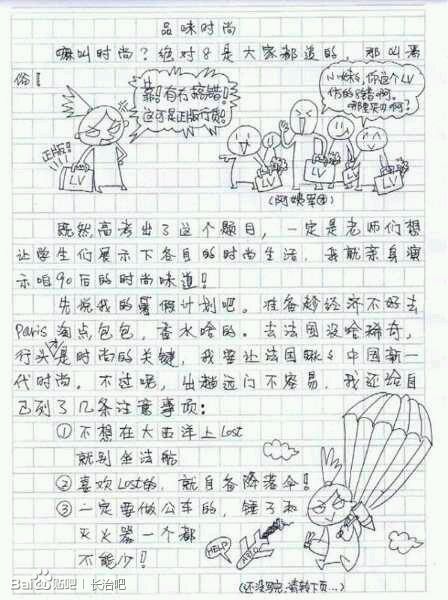 品味时尚
嘛叫时尚？绝对8是大家都追的，那叫落
俗！
靠！有冇搞错！
这可是正版行货！
正版！
LV
N妹纸，你这LV
仿的8错啊。
哪里买的啊？
LV
LV
LV
LV
(阿姨军团)
既然高考出了这个题目，一定是老师们想
让学生们展示下各自的时尚生活，我就亲身演
示咱90后的时尚味道！
先说我的暑假计划吧。准备趁经济不好去
Paris 淘点包包，香水啥的。去法国没啥稀奇，
行头是时尚的关键，我要让法国瞅瞅中国新一
代时尚。不过呢，出趟远门不容易，我还给自
己列了几条注意事项：
①不想在大西洋上Lost
就别坐法航
②喜欢Lost的，就自备降落伞！
③一定要做公车的，锤子和
灭火器一个都
不能少！
HELP
(还没写完，请转下页…)
Baidu贴吧 | 长治吧